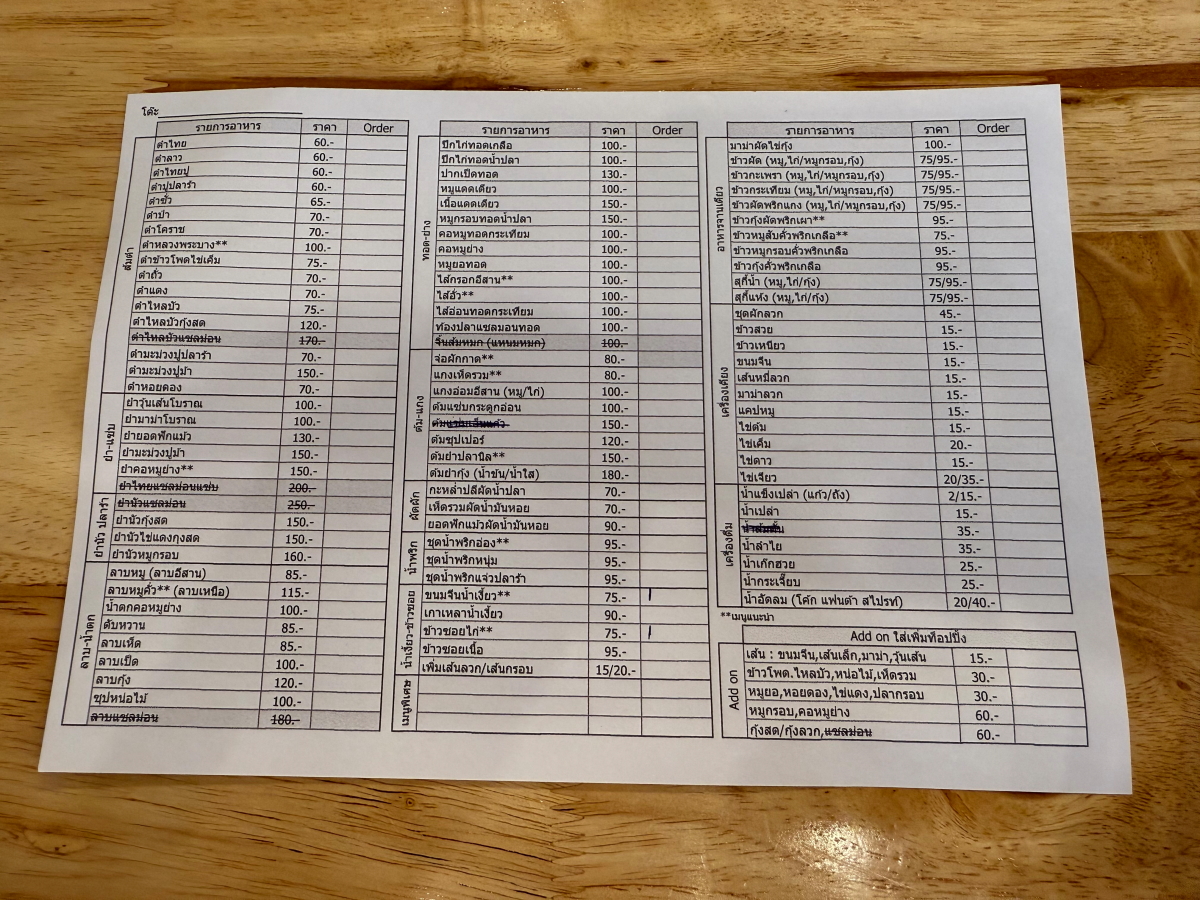 โต๊ะ
รายการอาหาร ราคา Order
ส้มตำ
ตำไทย 60.-
ตำลาว 60.-
ตำไทยปู 60.-
ตำปูปลาร้า 60.-
ตำซั่ว 65.-
ตำป่า 70.-
ตำโคราช 70.-
ตำหลวงพระบาง** 100.-
ตำข้าวโพดไข่เค็ม 75.-
ตำถั่ว 70.-
ตำแตง 70.-
ตำไหลบัว 75.-
ตำไหลบัวกุ้งสด 120.-
ตำไหลบัวแซลม่อน 170.-
ตำมะม่วงปูปลาร้า 70.-
ตำมะม่วงปูม้า 150.-
ตำหอยดอง 70.-
ยำ-แซ่บ
ยำวุ้นเส้นโบราณ 100.-
ยำมาม่าโบราณ 100.-
ยำยอดฟักแม้ว 130.-
ยำมะม่วงปูม้า 150.-
ยำคอหมูย่าง** 150.-
ยำไทยแซลม่อนแซ่บ 200.-
ยำนัว ปลาร้า
ยำนัวแซลม่อน 250.-
ยำนัวกุ้งสด 150.-
ยำนัวไข่แดงกุงสด 150.-
ยำนัวหมูกรอบ 160.-
ลาบ-น้ำตก
ลาบหมู (ลาบอีสาน) 85.-
ลาบหมูคั่ว** (ลาบเหนือ) 115.-
น้ำตกคอหมูย่าง 100.-
ตับหวาน 85.-
ลาบเห็ด 85.-
ลาบเป็ด 100.-
ลาบกุ้ง 120.-
ซุปหน่อไม้ 100.-
ลาบแซลม่อน 180.-
รายการอาหาร ราคา Order
ทอด-ย่าง
ปีกไก่ทอดเกลือ 100.-
ปีกไก่ทอดน้ำปลา 100.-
ปากเป็ดทอด 130.-
หมูแดดเดียว 100.-
เนื้อแดดเดียว 150.-
หมูกรอบทอดน้ำปลา 150.-
คอหมูทอดกระเทียม 100.-
คอหมูย่าง 100.-
หมูยอทอด 100.-
ไส้กรอกอีสาน** 100.-
ไส้อั่ว** 100.-
ไส้อ่อนทอดกระเทียม 100.-
ท้องปลาแซลมอนทอด 100.-
จิ้นส้มหมก (แหนมหมก) 100.-
ต้ม-แกง
จอผักกาด** 80.-
แกงเห็ดรวม** 80.-
แกงอ่อมอีสาน (หมู/ไก่) 100.-
ต้มแซ่บกระดูกอ่อน 100.-
ต้มแซ่บเอ็นแก้ว 150.-
ต้มซุปเปอร์ 120.-
ต้มยำปลานิล** 150.-
ต้มยำกุ้ง (น้ำข้น/น้ำใส) 180.-
ผัดผัก
กะหล่ำปลีผัดน้ำปลา 70.-
เห็ดรวมผัดน้ำมันหอย 70.-
ยอดฟักแม้วผัดน้ำมันหอย 90.-
น้ำพริก
ชุดน้ำพริกอ่อง** 95.-
ชุดน้ำพริกหนุ่ม 95.-
ชุดน้ำพริกแจ่วปลาร้า 95.-
น้ำเงี้ยว-ข้าวซอย
ขนมจีนน้ำเงี้ยว** 75.- |
เกาเหลาน้ำเงี้ยว 90.-
ข้าวซอยไก่** 75.- |
ข้าวซอยเนื้อ 95.-
เพิ่มเส้นลวก/เส้นกรอบ 15/20.-
เมนูพิเศษ
รายการอาหาร ราคา Order
อาหารจานเดียว
มาม่าผัดไข่กุ้ง 100.-
ข้าวผัด (หมู,ไก่/หมูกรอบ,กุ้ง) 75/95.-
ข้าวกะเพรา (หมู,ไก่/หมูกรอบ,กุ้ง) 75/95.-
ข้าวกระเทียม (หมู,ไก่/หมูกรอบ,กุ้ง) 75/95.-
ข้าวผัดพริกแกง (หมู,ไก่/หมูกรอบ,กุ้ง) 75/95.-
ข้าวกุ้งผัดพริกเผา** 95.-
ข้าวหมูสับคั่วพริกเกลือ** 75.-
ข้าวหมูกรอบคั่วพริกเกลือ 95.-
ข้าวกุ้งคั่วพริกเกลือ 95.-
สุกี้น้ำ (หมู,ไก่/กุ้ง) 75/95.-
สุกี้แห้ง (หมู,ไก่/กุ้ง) 75/95.-
เครื่องเคียง
ชุดผักลวก 45.-
ข้าวสวย 15.-
ข้าวเหนียว 15.-
ขนมจีน 15.-
เส้นหมี่ลวก 15.-
มาม่าลวก 15.-
แคปหมู 15.-
ไข่ต้ม 15.-
ไข่เค็ม 20.-
ไข่ดาว 15.-
ไข่เจียว 20/35.-
เครื่องดื่ม
น้ำแข็งเปล่า (แก้ว/ถัง) 2/15.-
น้ำเปล่า 15.-
น้ำส้มคั้น 35.-
น้ำลำไย 35.-
น้ำเก๊กฮวย 25.-
น้ำกระเจี๊ยบ 25.-
น้ำอัดลม (โค๊ก แฟนต้า สไปรท์) 20/40.-
**เมนูแนะนำ
Add on ใส่เพิ่มท็อปปิ้ง
Add on
เส้น : ขนมจีน,เส้นเล็ก,มาม่า,วุ้นเส้น 15.-
ข้าวโพด.ไหลบัว,หน่อไม้,เห็ดรวม 30.-
หมูยอ,หอยดอง,ไข่แดง,ปลากรอบ 30.-
หมูกรอบ,คอหมูย่าง 60.-
กุ้งสด/กุ้งลวก,แซลม่อน 60.-